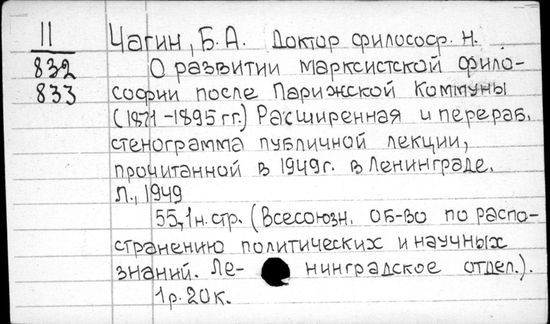 11 Чагин, Б.А. Доктор философ. н.
832 О развитии марксистской фило-
833 софии после Парижской Коммуны
(1871-1895 гг.) Расширенная и перераб.
стенограмма публичной лекции,
прочитанной в 1949г. в Ленинграде.
Л., 1949
55,1н.стр. (Всесоюзн. об-во по распо-
странению политических и научных
знаний. Ле- нинградское отдел.).
1р.20к.